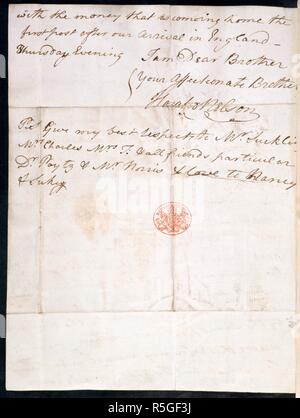 with the money that is coming home the
first post after our arrival in England—
Thursday Evening I am Dear Brother
Your Affectionate Brother
Horatio Nelson
Give my best respects to Mr. Suckling
Mrs. Charles Mrs. F. & all friends particular
Dr. Poyntz & Mr. Norris & Love to Harry
& Sukey
alamy
Image ID: R5GF3J
www.alamy.com